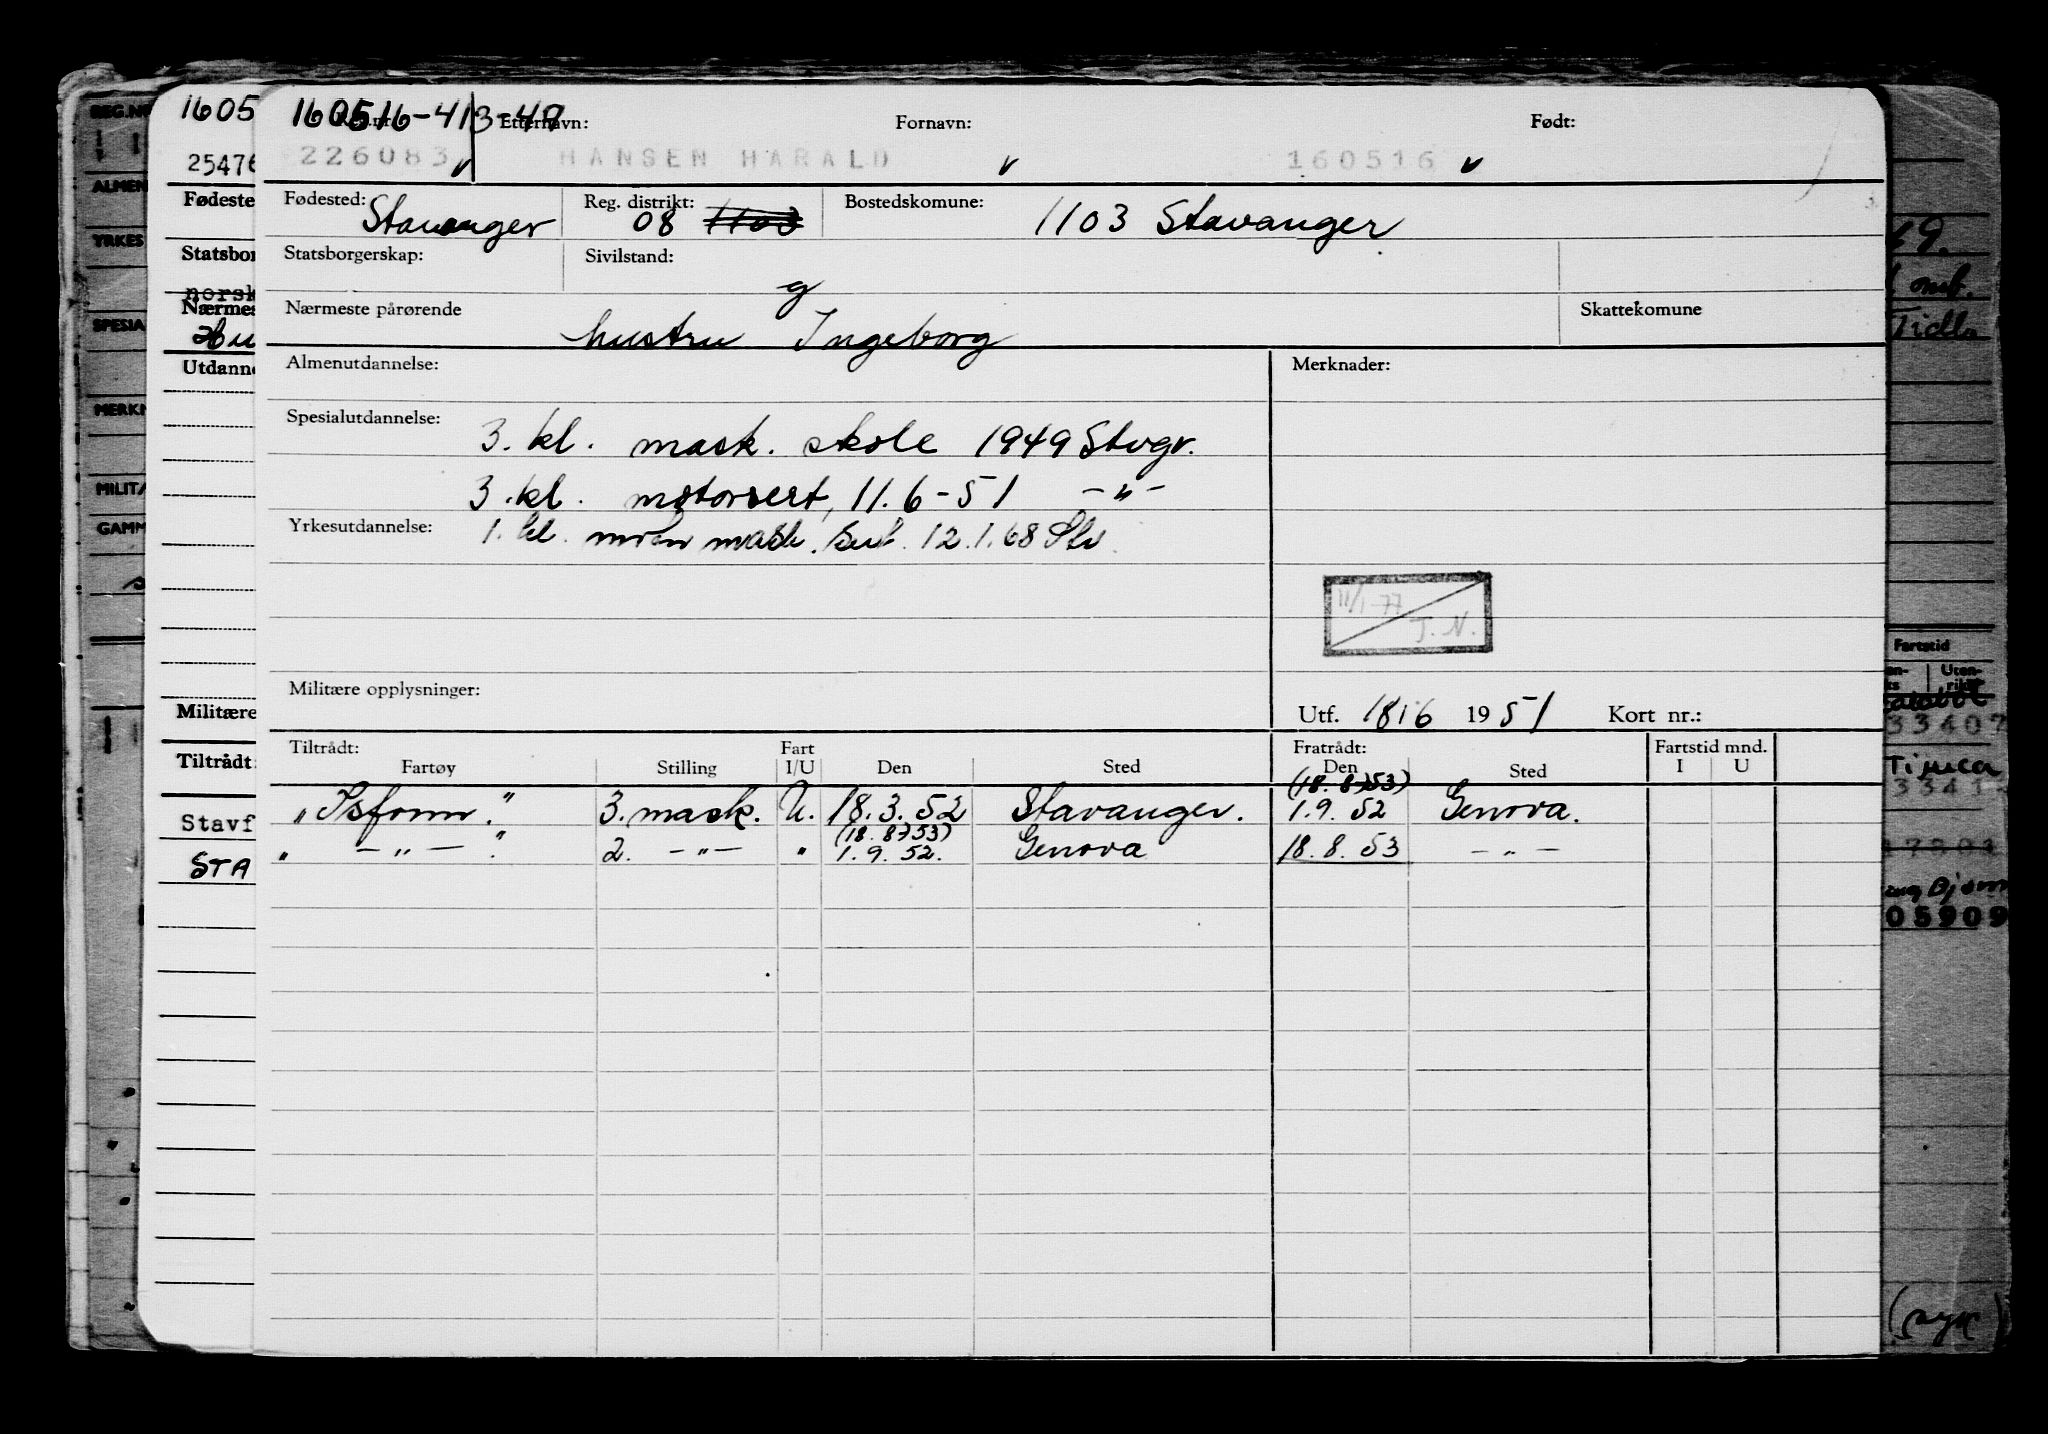 160516-413-49
Reg.nr. Etternavn: Fornavn: Født:
226083 HANSEN HARALD 160516
Fødested: Stavanger Reg. distrikt: 08 1103 Bostedskomune: 1103 Stavanger
Statsborgerskap: Sivilstand: g
Nærmeste pårørende hustru Ingeborg Skattekomune
Almenutdannelse: Merknader:
Spesialutdannelse: 3. kl. mask. skole 1949 Stvgr.
3. kl. motorsert, 11.6-51 -"-
Yrkesutdannelse: 1. kl. mask. 12.1.68 Stv.
11/1-77
J. N.
Militære opplysninger: Utf. 18/6 1951 Kort nr.:
Tiltrådt: Fart Fratrådt: Fartstid mnd.
Fartøy Stilling I/U Den Sted Den Sted I U
(18. 8. 53)
"Isfonn." 3. mask. U. 18.3.52 Stavanger. 1.9.52 Genova.
(18. 8. 53)
" -"- " 2. -"- " 1.9.52. Genova 18.8.53 -"-
1605
25476
Fødeste
Statsbor
norsk
Nærmes
Hu
Utdanne
Militære
Tiltrådt:
Stavf
STA
REG.NR
ALMEN
YRKES
SPESIA
MERKN
MILITÆ
GAMM
69.
Fartstid
Uten-
riks
33407
Tijuca
3341
05909